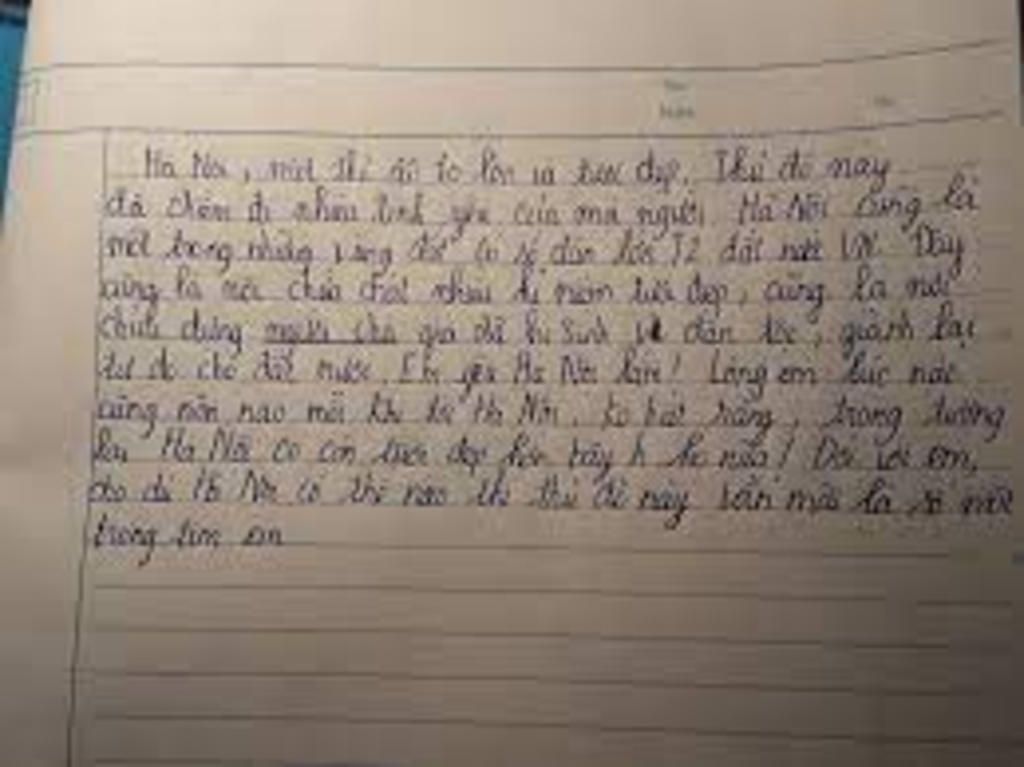 Hà Nội, một thủ đô to lớn và tươi đẹp. Thủ đô này
đã chiếm đi nhiều tình yêu của mọi người. Hà Nội cũng là
một trong những vùng đất có số dân lớn T2 đất nước VN. Đây
cũng là nơi chứa chất nhiều kỉ niệm tươi đẹp, cũng là nơi
chứa đựng gia đã hi sinh vì dân tộc, giành lại
tự do cho đất nước. Em yêu Hà Nội lắm! Lòng em lúc nào
cũng nôn nao mỗi khi tới Hà Nội, ko biết rằng, trong tương
lai Hà Nội có còn tươi đẹp hơn bây h ko nữa! Đối với em,
cho dù Hà Nội có thế nào thì thủ đô này vẫn mãi là số một
trong tim em